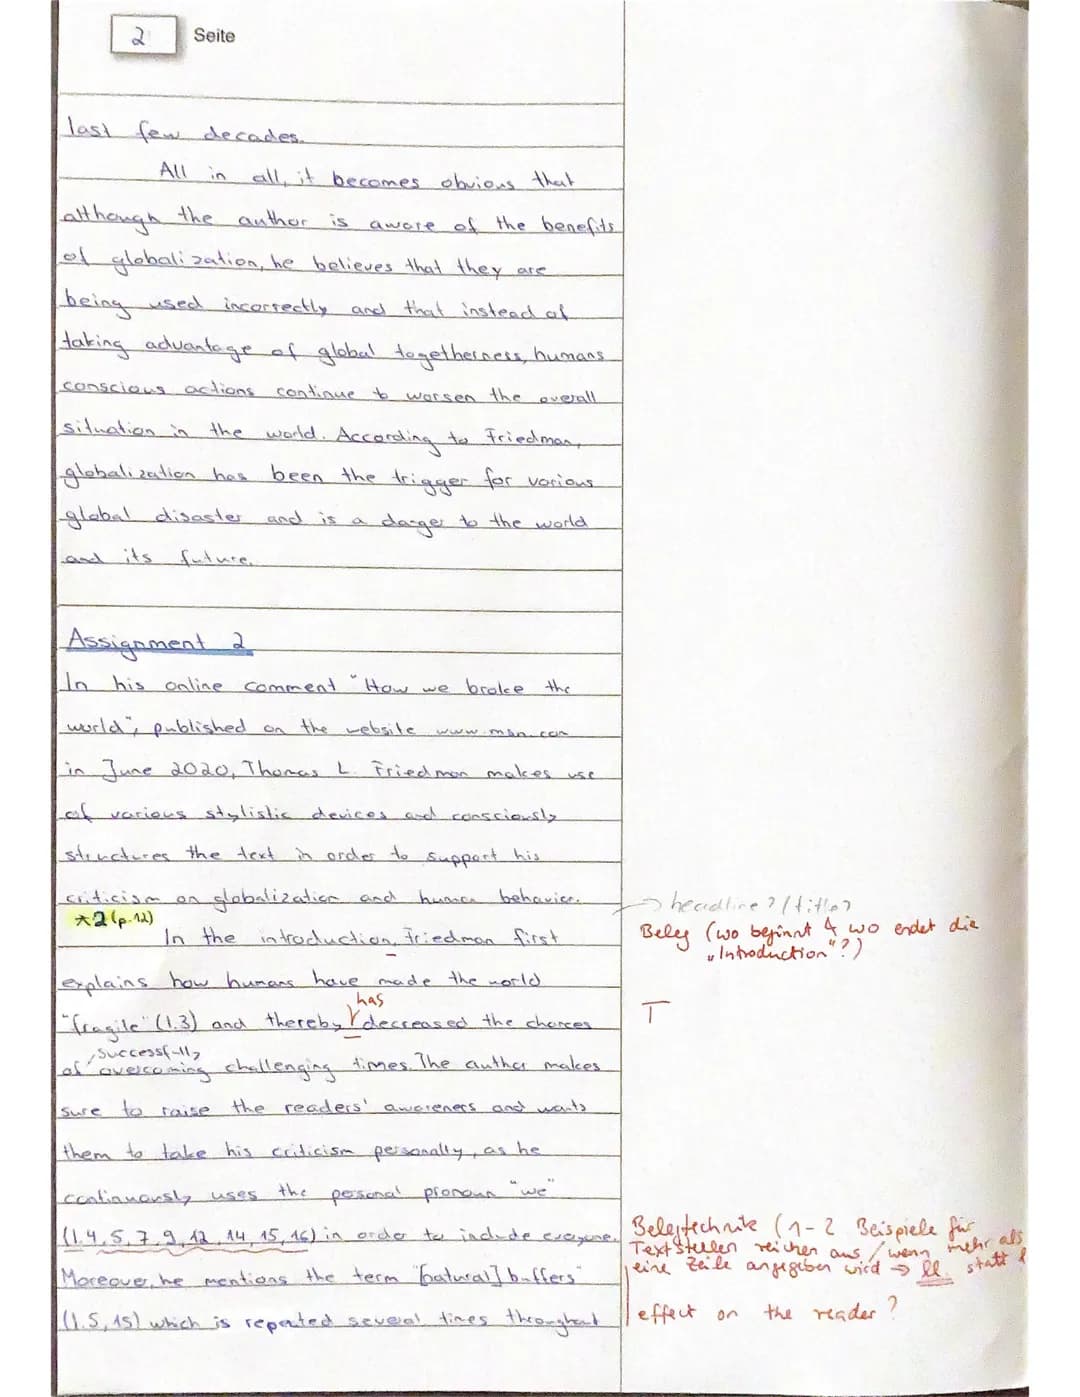 2 Seite
last few decades.
All in all, it becomes obvious that
although the author is aware of the benefits
of globalization, he believes that they are
being used incorrectly and that instead of
taking advantage of global togetherness, humans
conscious actions continue to worsen the overall
situation in the world. According to Friedman,
globalization has been the trigger for various
global disaster and is a danger to the world
and its future.
Assignment 2
In his online comment "How we broke the
world", published on the website www.msn.com
in June 2020, Thomas L. Friedman makes use
of various stylistic devices and consciously
structures the text in order to support his
criticism on globalization and human behavior.
→ headline? (title?
*2 (p.12)
In the introduction, Friedman first
Beleg (wo beginnt & wo endet die
„Introduction"?)
explains how humans have made the world
has
"fragile" (l.3) and thereby decreased the chances
T
successfully
of overcoming challenging times. The author makes
sure to raise the readers' awareners and wants
them to take his criticism personally, as he
continuously uses the personal pronoun "we"
(l.4,5,7,9,12,14,15,16) in order to include everyone.
Belegtechnik (1-2 Beispiele für
Textstellen reichen aus / wenn mehr als
eine Zeile angegeben wird → ll. statt l
Moreover, he mentions the term "[natural] buffers"
(l.5,15) which is repeated several times throughout
effect on the reader?